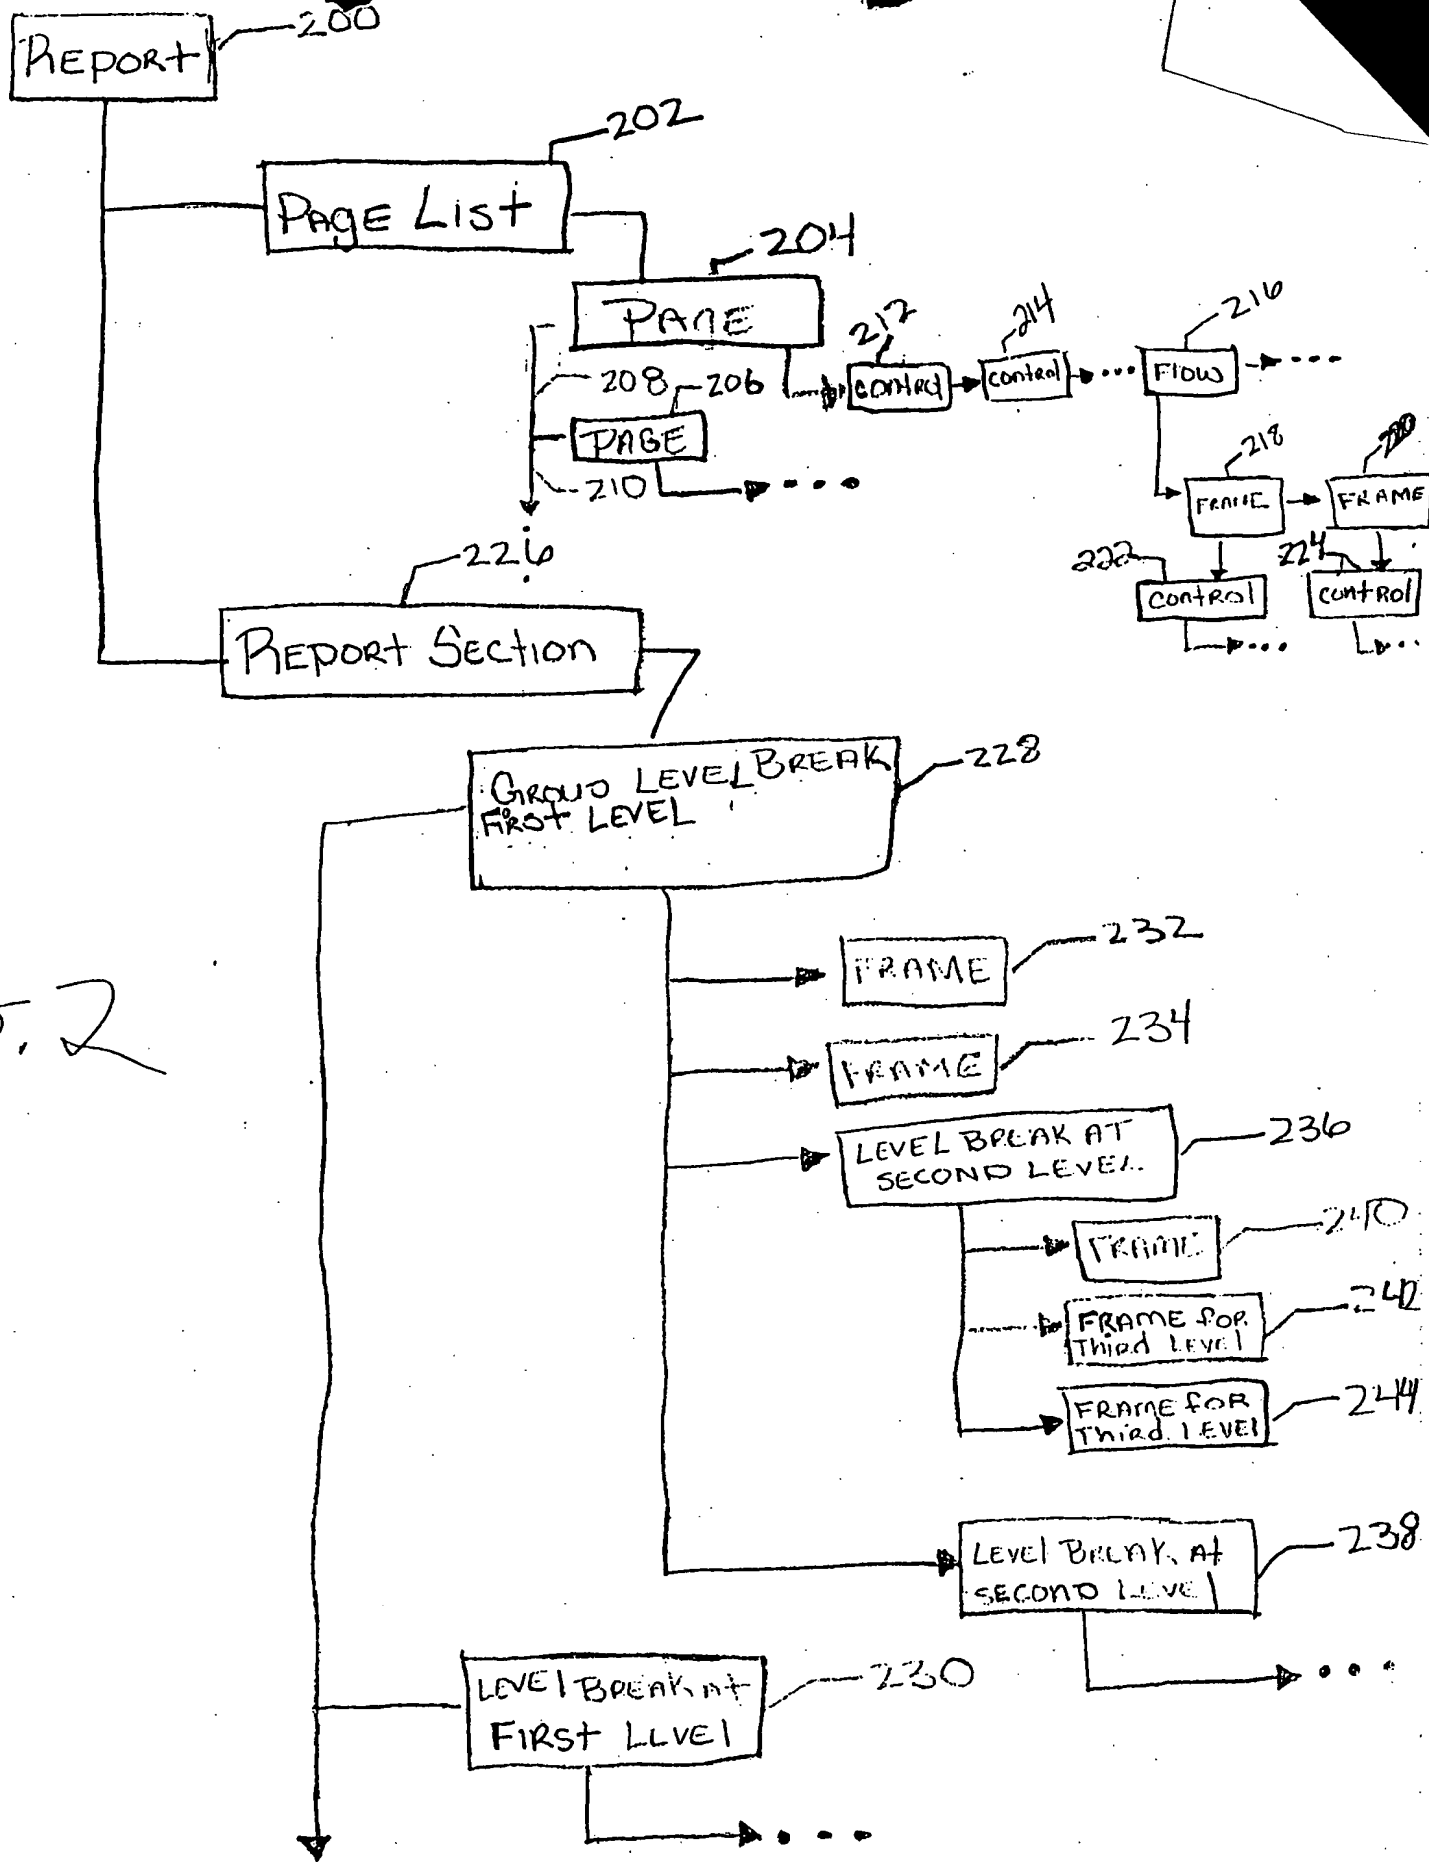 REPORT
200
202
PAGE LIST
204
PAGE
212
214
216
CONTROL
CONTROL
FLOW
208
206
PAGE
210
218
220
FRAME
FRAME
226
222
224
CONTROL
CONTROL
REPORT SECTION
GROUP LEVEL BREAK
FIRST LEVEL
228
FRAME
232
FRAME
234
. 2
LEVEL BREAK AT
SECOND LEVEL
236
FRAME
240
FRAME FOR
Third LEVEL
242
FRAME FOR
Third LEVEL
244
LEVEL BREAK At
SECOND LEVEL
238
LEVEL BREAK At
FIRST LEVEL
230